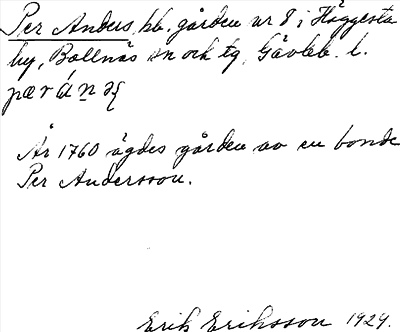 Per Anders, bb. gården nr 8 i Häggesta
by, Bollnäs sn och tg, Gävleb. l.
År 1760 ägdes gården av en bonde
Per Andersson.
Erik Eriksson 1929.